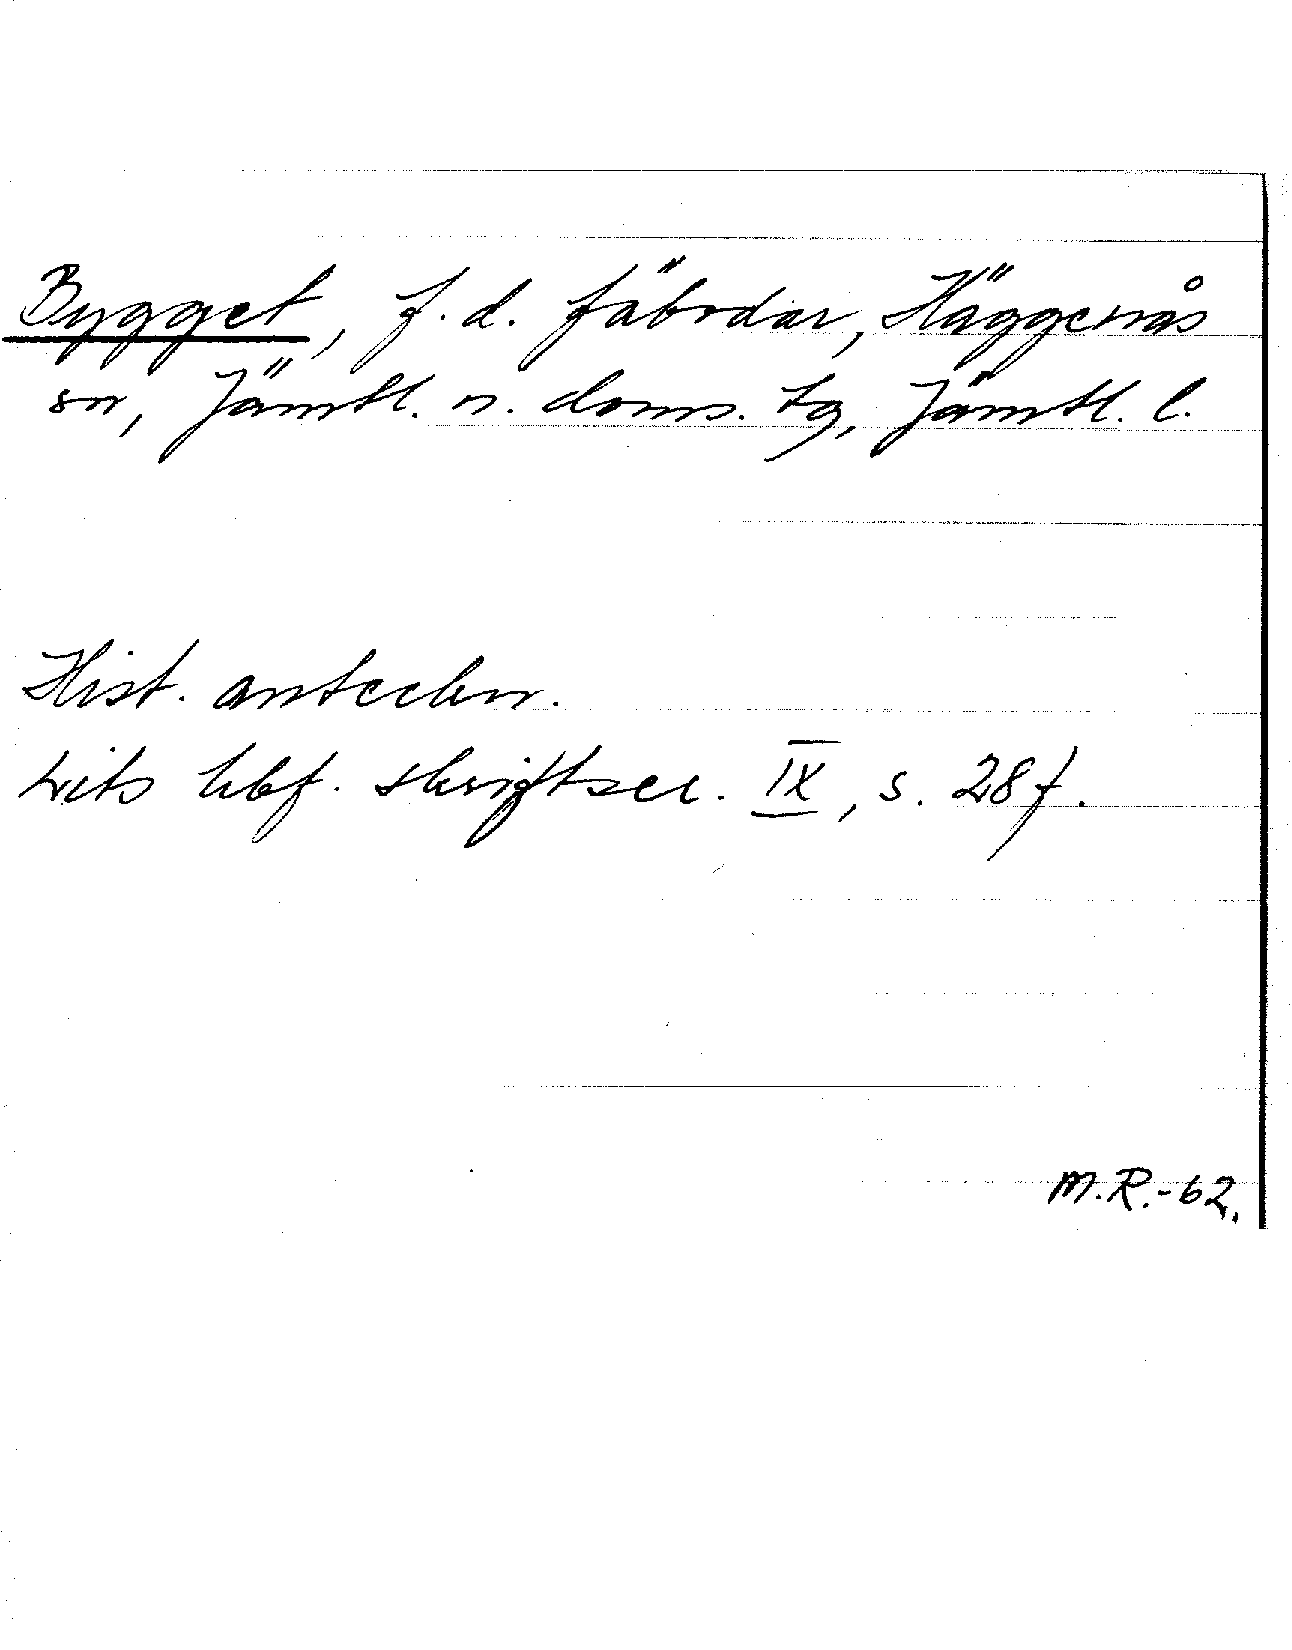 Bygget, f.d. fäbodar, Häggenås
sn, Jämtl. n. doms. tg, Jämtl. l.
Hist. anteckn.
hbf. skriftser. IX, s. 28 f.
M.R.-62.